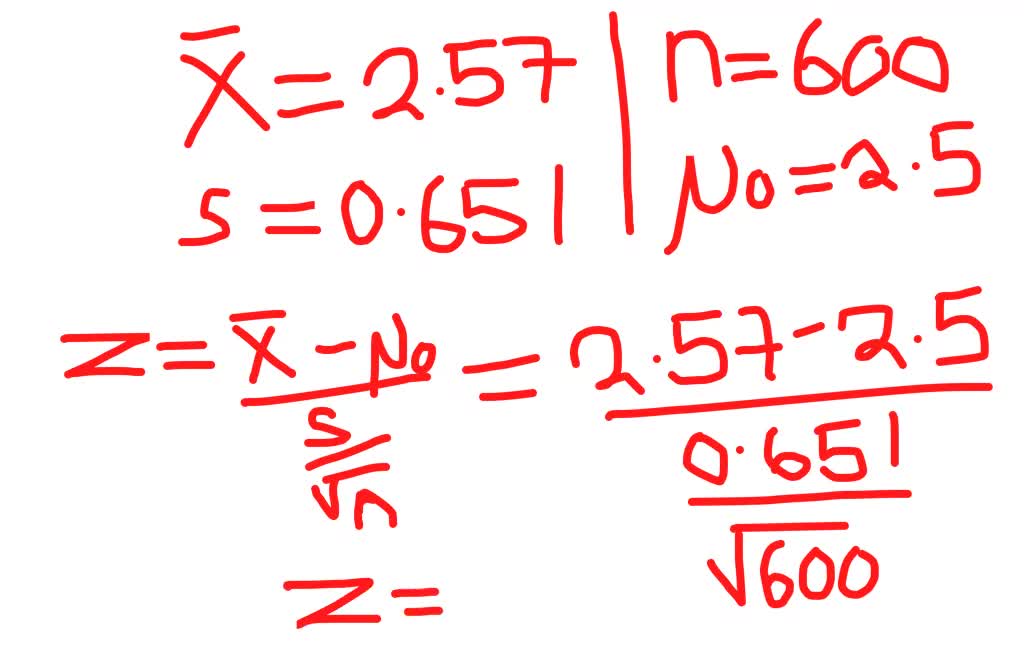 x̄ = 2.57 | n = 600
s = 0.651 | μ₀ = 2.5
z = (x̄ - μ₀) / (s/√n) = (2.57 - 2.5) / (0.651/√600)
z =